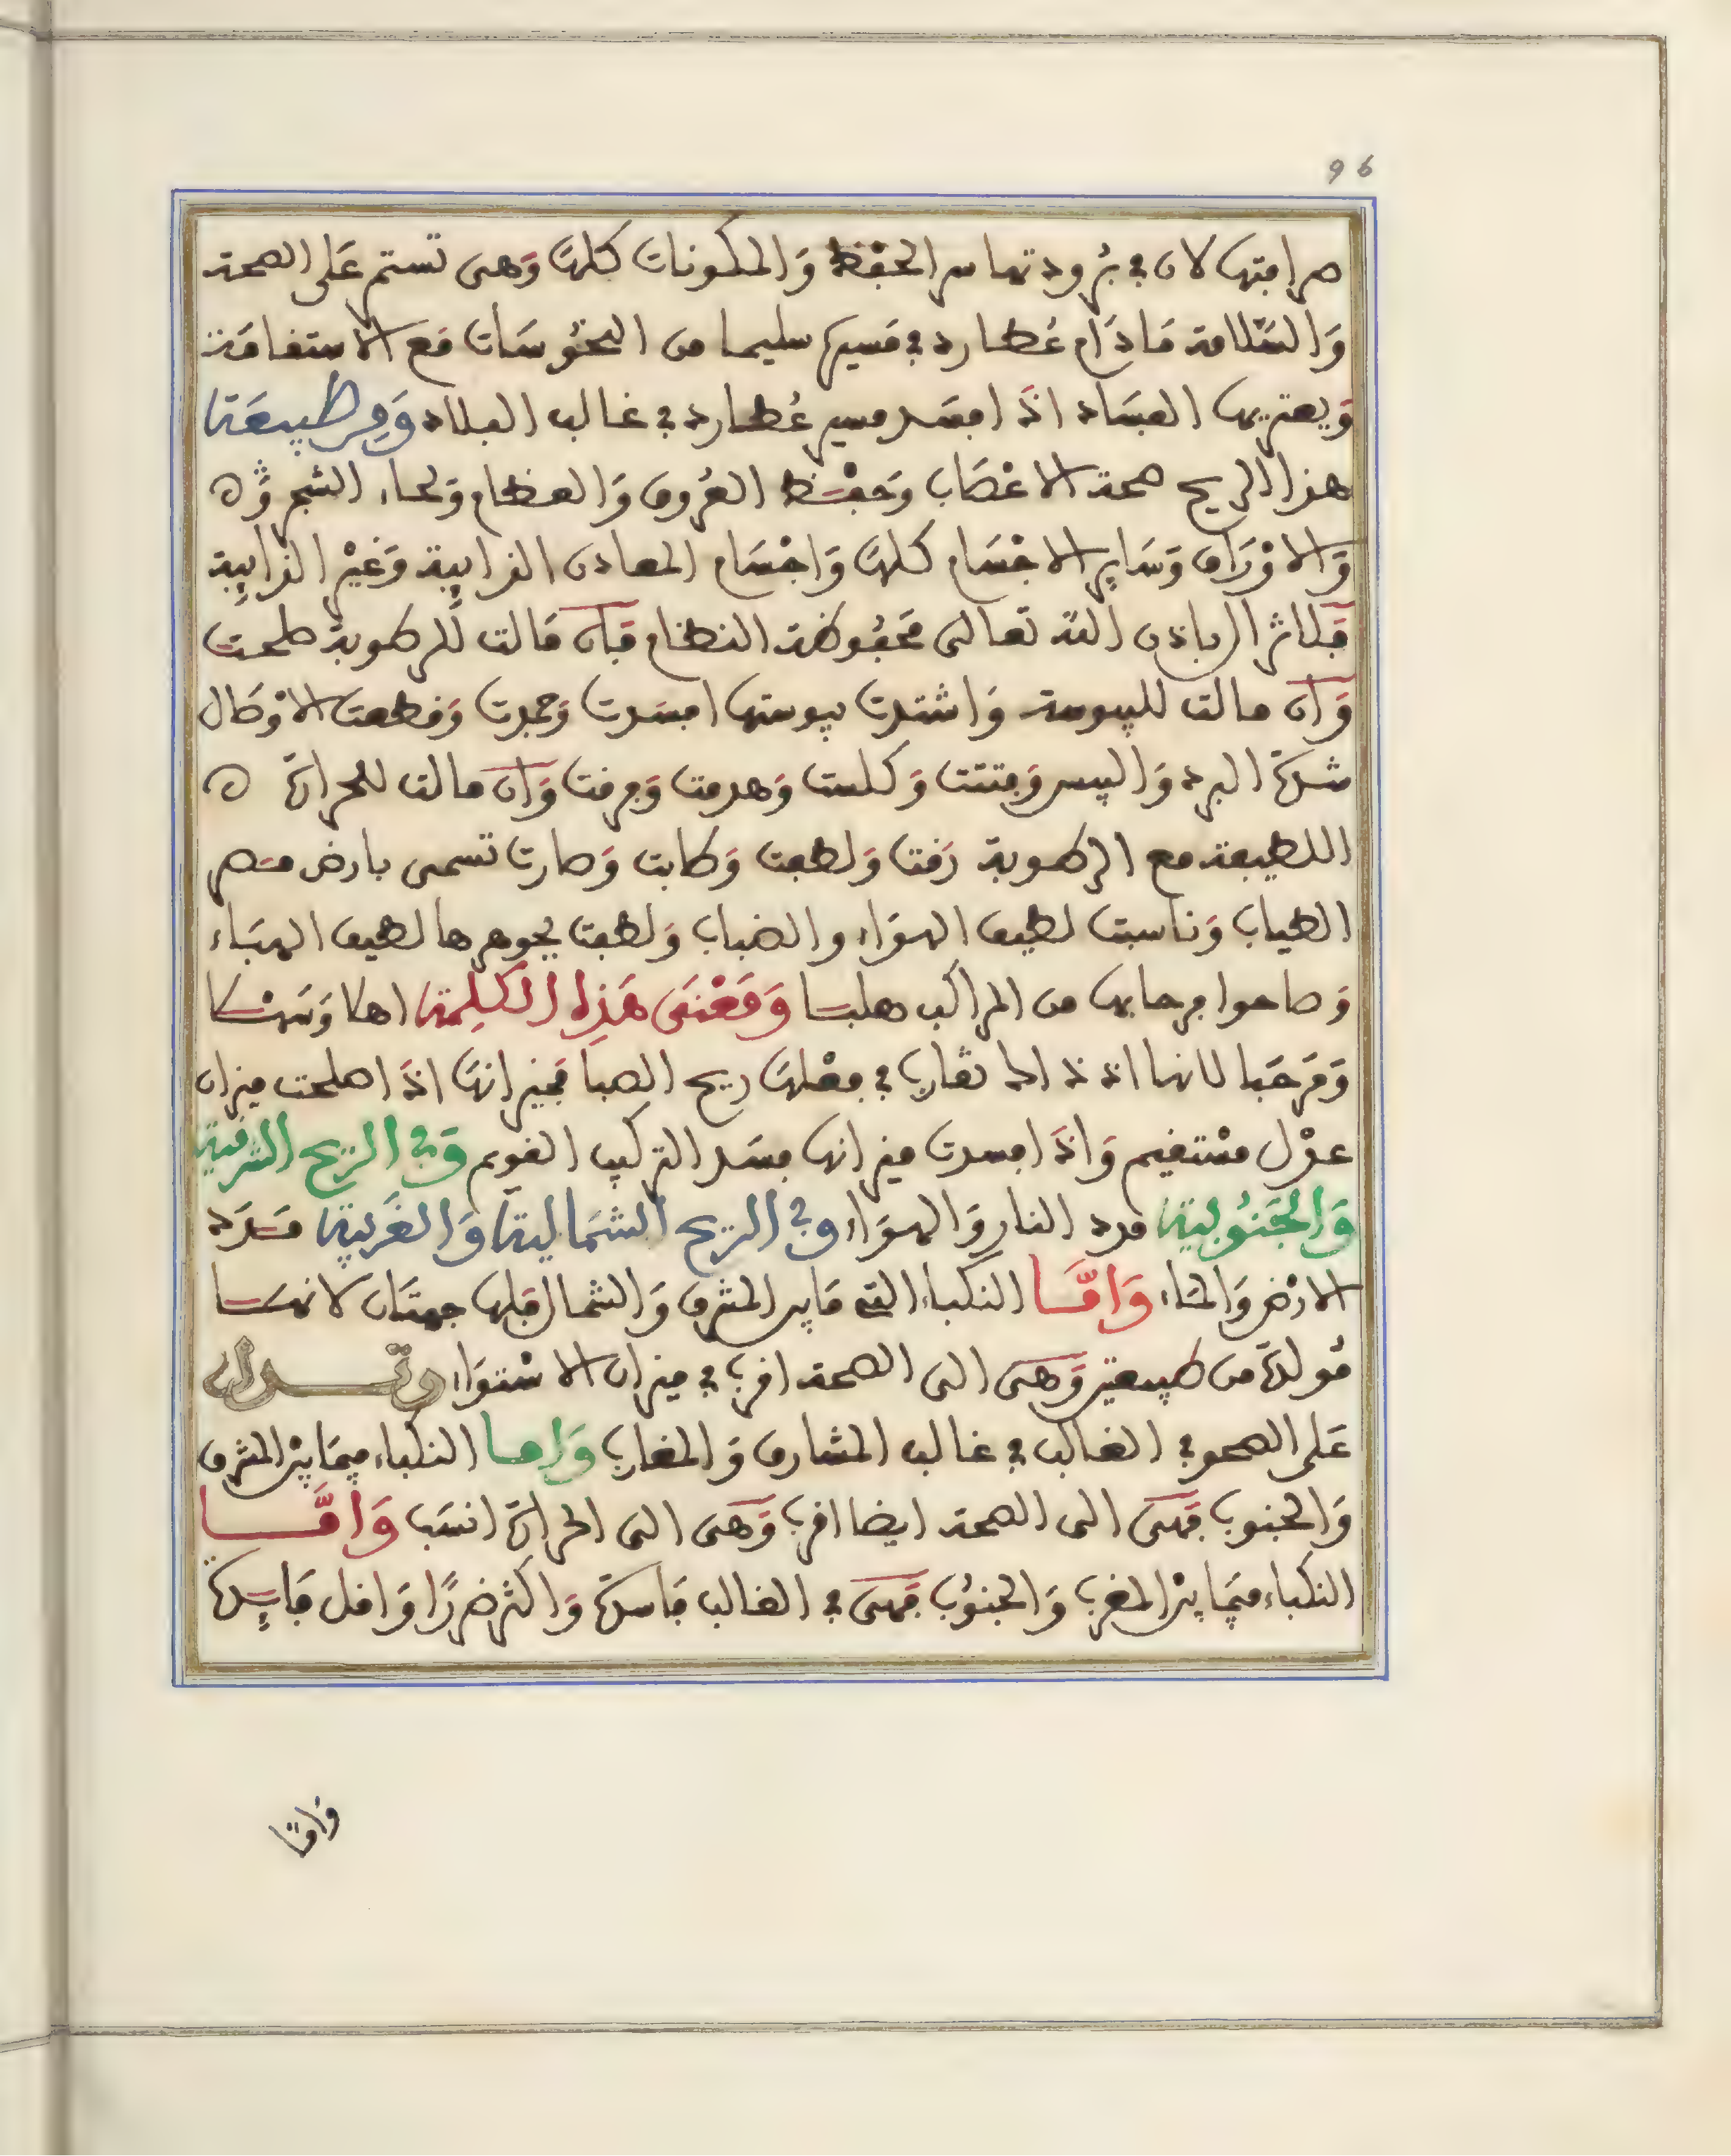 96
صرافتها لان في برودتها سر الحفظ والمكونات كلها وهي تستمر على الصحة
والسلامة ما دام عطارد في مسيره سليما من النحوسات مع الاستقامة
ويعتريها الفساد اذا افسد مسير عطارد في غالب البلاد ومن طبيعة
هذا الريح صحة الاعصاب وحفظ العروق والعظام ولحاء الشجر و
والاوراق وساير الاجسام كلها واجسام المعادن الذايبة وغير الذايبة
باذن الله تعالى محفوظة النظام فان مالت للرطوبة صلحت
وان مالت لليبوسة واشتدت يبوستها افسدت وجمدت وقطعت الاوصال
شدة البرد واليبس وفتتت وكلست وهدمت وفرقت وان مالت للحرارة
اللطيفة مع الرطوبة رقت ولطفت وطابت وصارت تسمى بارض مصر
الطياب وناسبت لطيف الهواء والضباب ولطفت بجوهرها لطيف الهباء
وصاحوا فرحا بها من المراكب هلبسا ومعنى هذه الكلمة اهلا وسهلا
ومرحبا لانها اذ ذاك تقارب في فعلها ريح الصبا فميزانها اذا اصلحت ميزان
عدل مستقيم واذا افسدت ميزانها فسد التركيب القويم وفي الريح الشرقية
والجنوبية مدد النار والهواء وفي الريح الشمالية والغربية مدد
الارض والماء واما النكباء التي ما بين المشرق والشمال فلها جهتان لانها
مولدة من طبيعتين وهي الى الصحة اقرب في ميزان الاستواء وتدل
على الصحو في الغالب في غالب المشارق والمغارب واما النكباء فيما بين المشرق
والجنوب فهي الى الصحة ايضا اقرب وهي الى الحرارة انسب واما
النكباء فيما بين المغرب والجنوب فهي في الغالب فاسدة واكثر ضررا واقل فايدة
واما